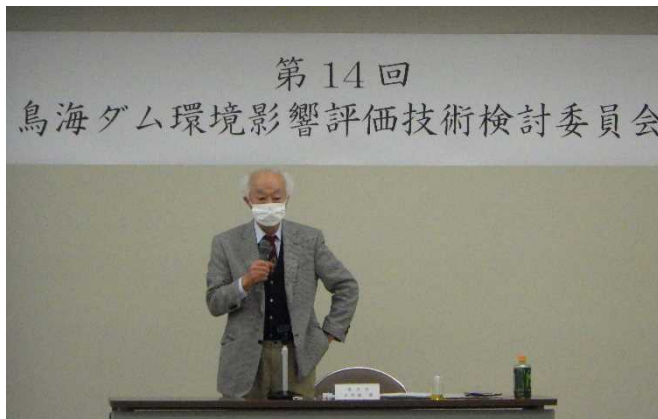 第14回
鳥海ダム環境影響評価技術検討委員会